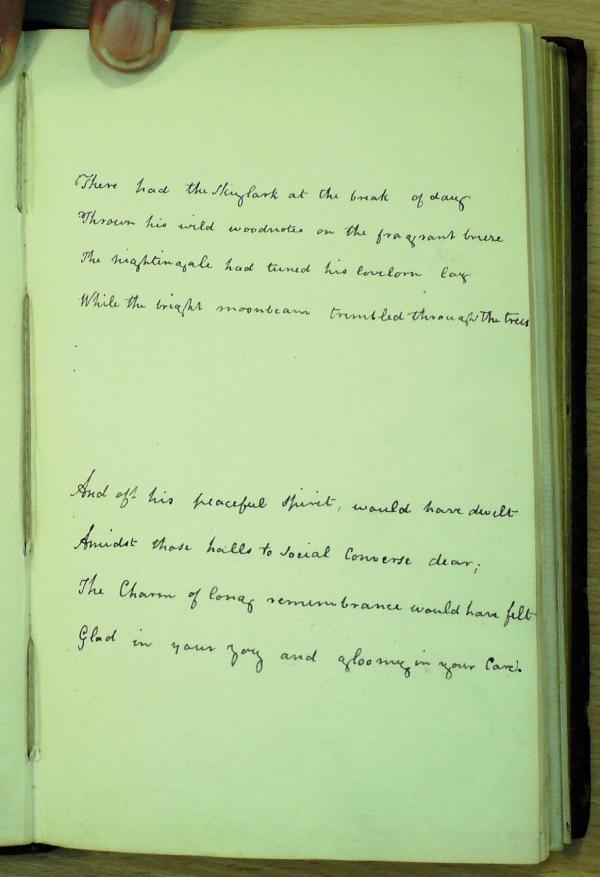 There had the Skylark at the break of day
Thrown his wild woodnotes on the fragrant breeze
The nightingale had tuned his lovelorn lay
While the bright moonbeam trembled through the trees
And oft his peaceful Spirit, would have dwelt
Amidst those halls to Social Converse dear;
The Charm of long remembrance would have felt
Glad in your joy and gloomy in your Care.